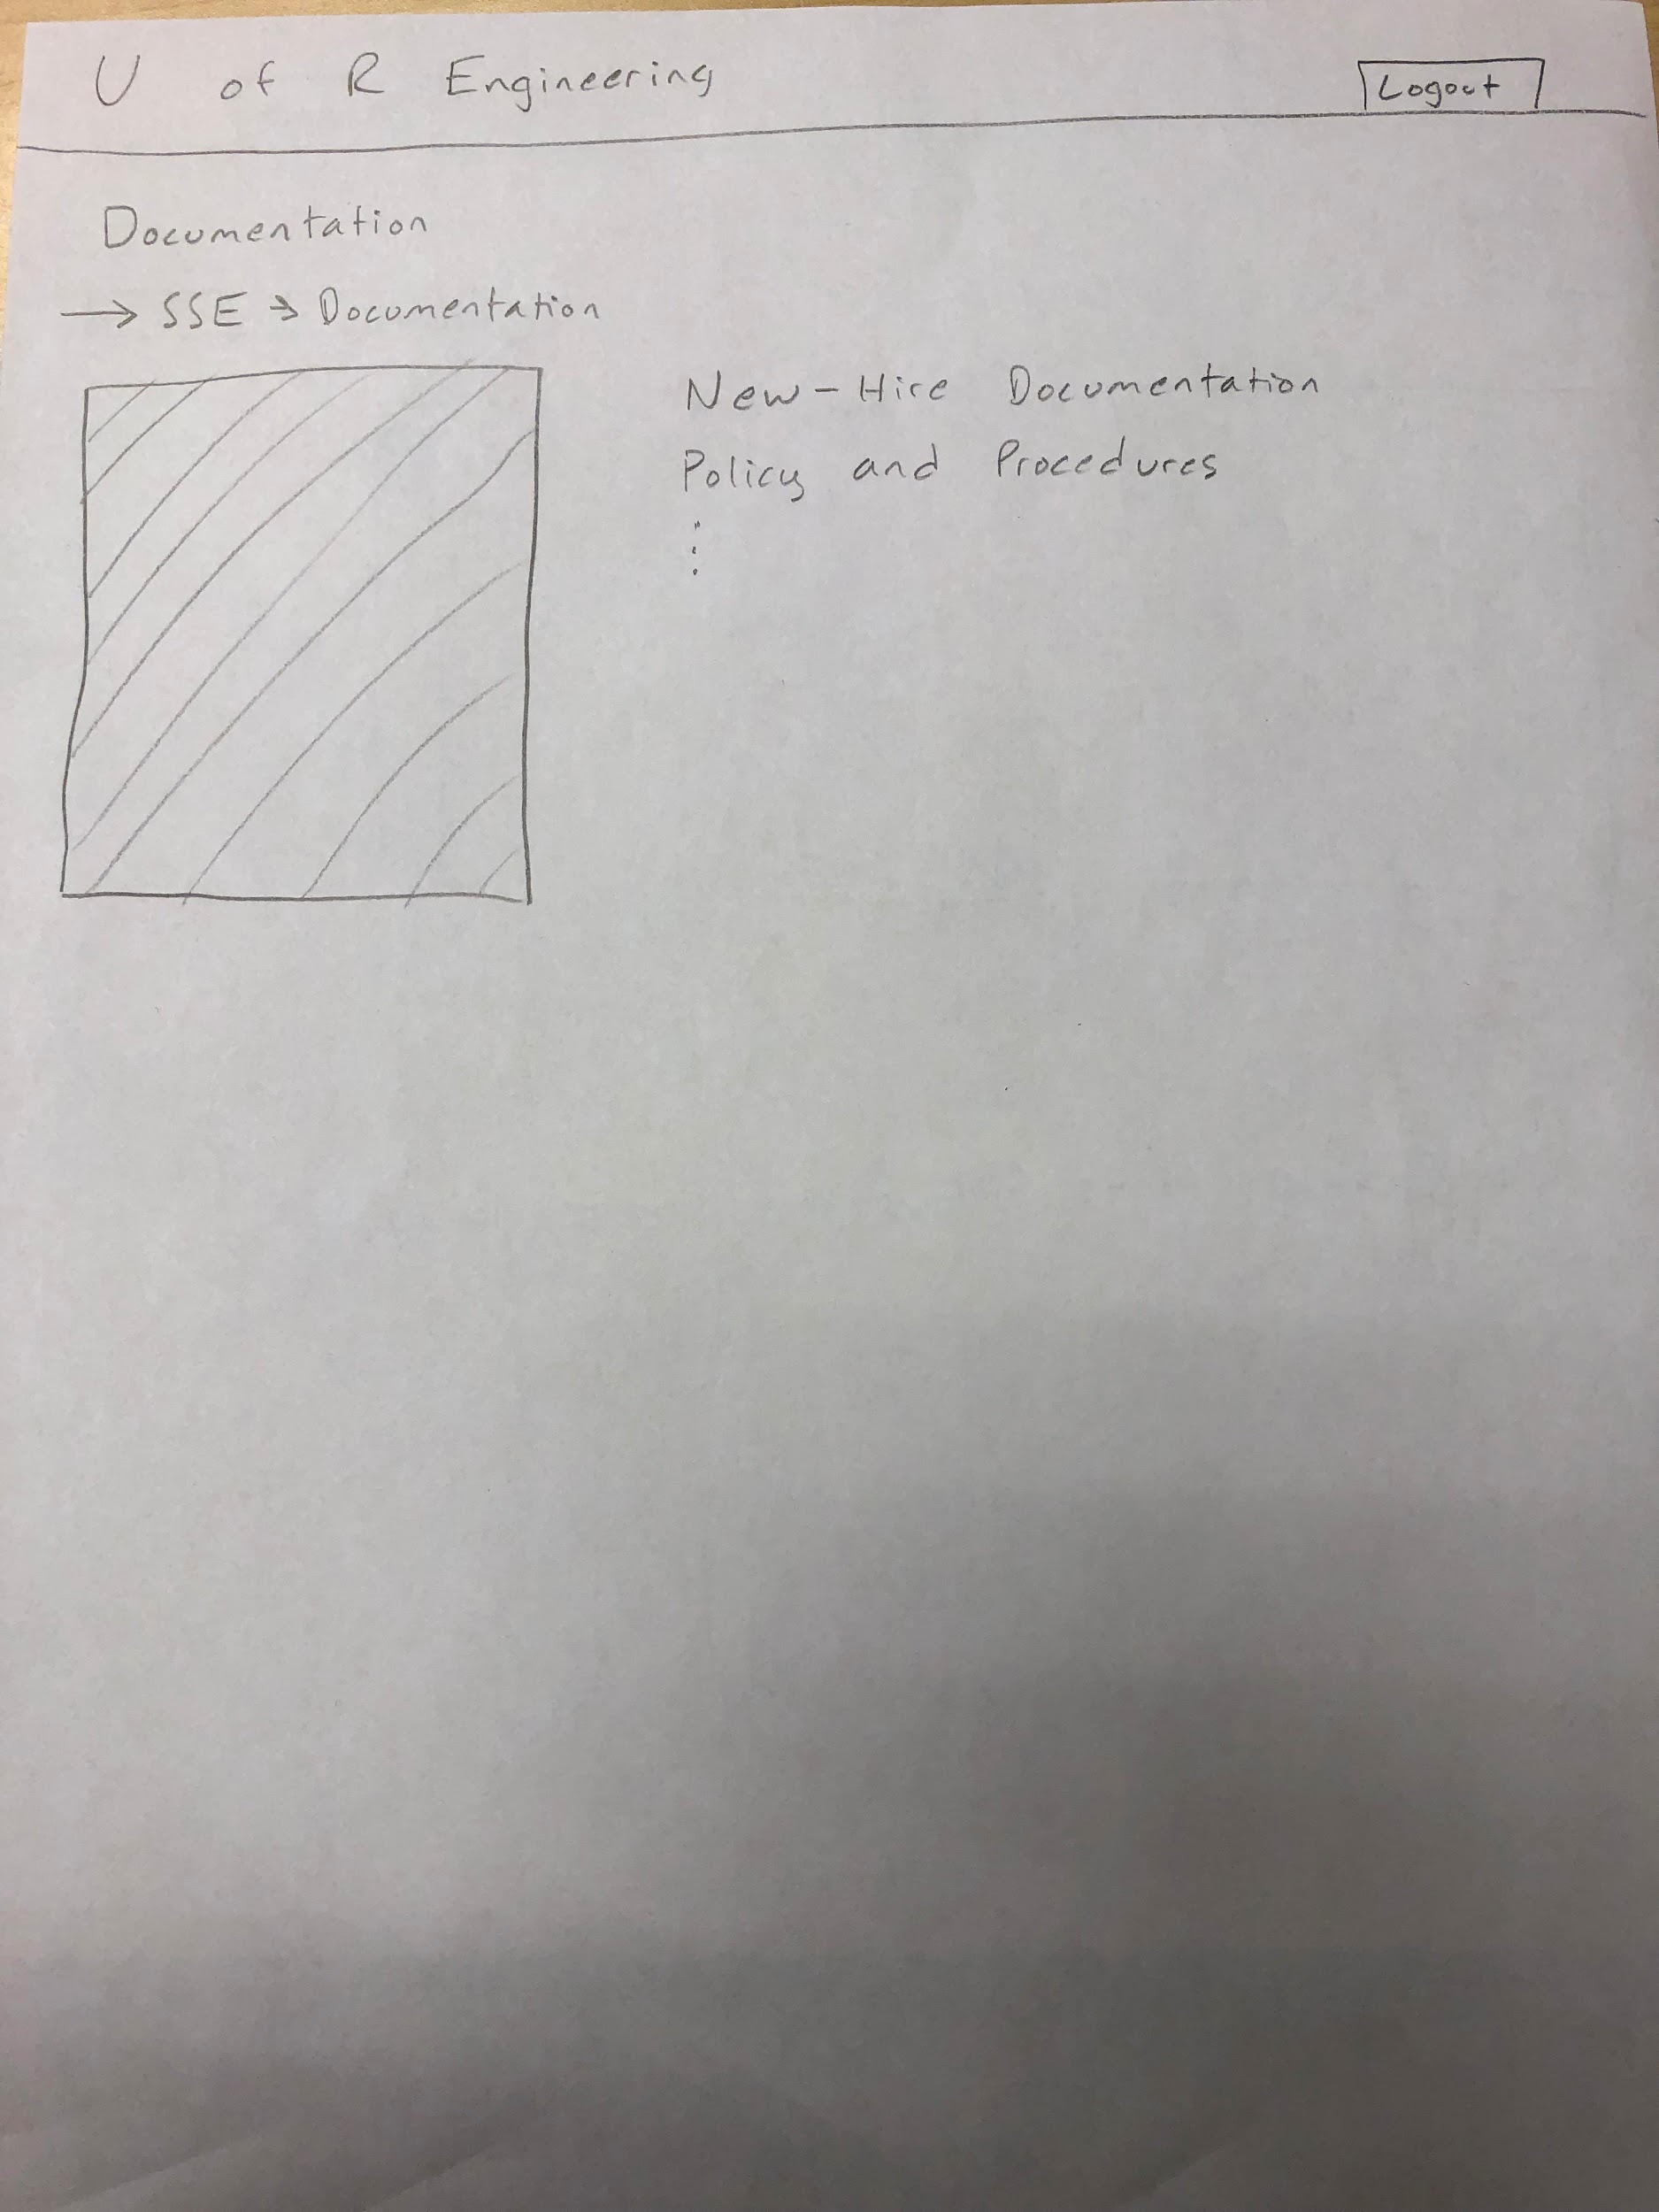 U of R Engineering
Logout
Documentation
→ SSE → Documentation
New-Hire Documentation
Policy and Procedures
⋮